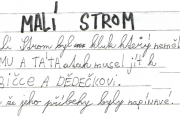 MALÍ STROM
lí Strom byl kluk který neměl
MU A TÁTA a tak musel jít k
BIČCE A DĚDEČKOVI.
že jeho příběhy byly napínavé.